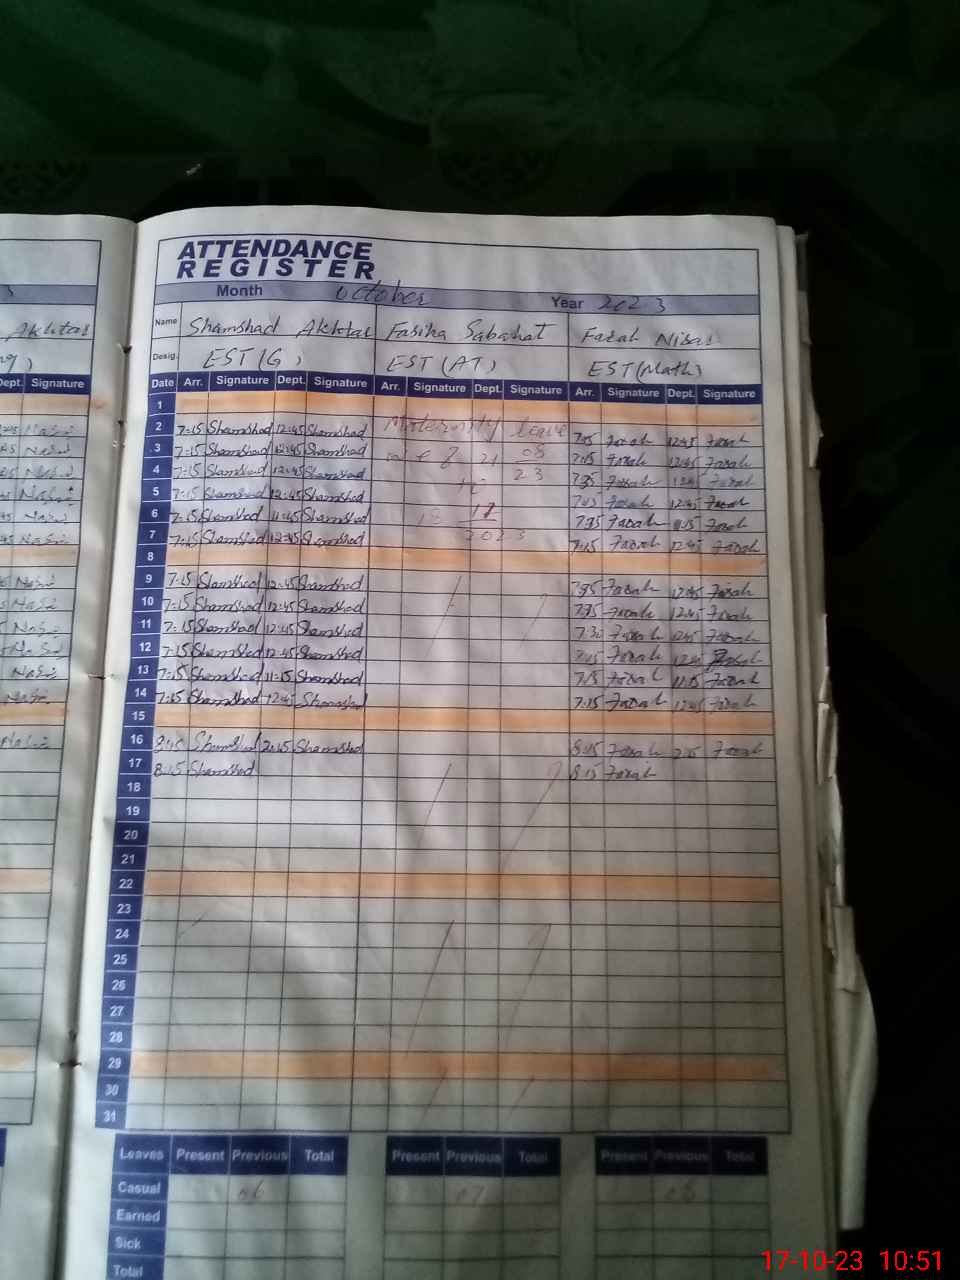 ATTENDANCE
REGISTER
Month October Year 2023
Name Shamshad Akhtar Fasiha Sabahat Farah Nisar
Desig. EST (G) EST (AT) EST (Math)
Dept. Signature
Date Arr. Signature Dept. Signature Arr. Signature Dept. Signature Arr. Signature Dept. Signature
1
2 7:15 Shamshad 12:45 Shamshad Maternity leave Farah 12:45 Farah
3 7:15 Shamshad 12:45 Shamshad 21 08 7:15 Farah 12:45 Farah
4 7:15 Shamshad 12:45 Shamshad 23 Farah Farah
5 7:15 Shamshad 12:45 Shamshad Farah 12:45 Farah
6 7:15 Shamshad 11:45 Shamshad 18 Farah Farah
7 7:15 Shamshad 12:45 Shamshad 2023 7:15 Farah 12:45 Farah
8
9 7:15 Shamshad 12:45 Shamshad Farah 12:45 Farah
10 7:15 Shamshad 12:45 Shamshad Farah 12:45 Farah
11 7:15 Shamshad 12:45 Shamshad 7:30 Farah 12:45 Farah
12 7:15 Shamshad 12:45 Shamshad Farah 12:45 Farah
13 7:15 Shamshad 11:15 Shamshad 7:15 Farah 11:15 Farah
14 7:15 Shamshad 12:45 Shamshad 7:15 Farah 12:45 Farah
15
16 8:15 Shamshad 2:45 Shamshad 8:15 Farah Farah
17 8:15 Shamshad 8:15 Farah
18
19
20
21
22
23
24
25
26
27
28
29
30
31
Leaves Present Previous Total Present Previous Total Present Previous Total
Casual 06 07 08
Earned
Sick
Total
17-10-23 10:51